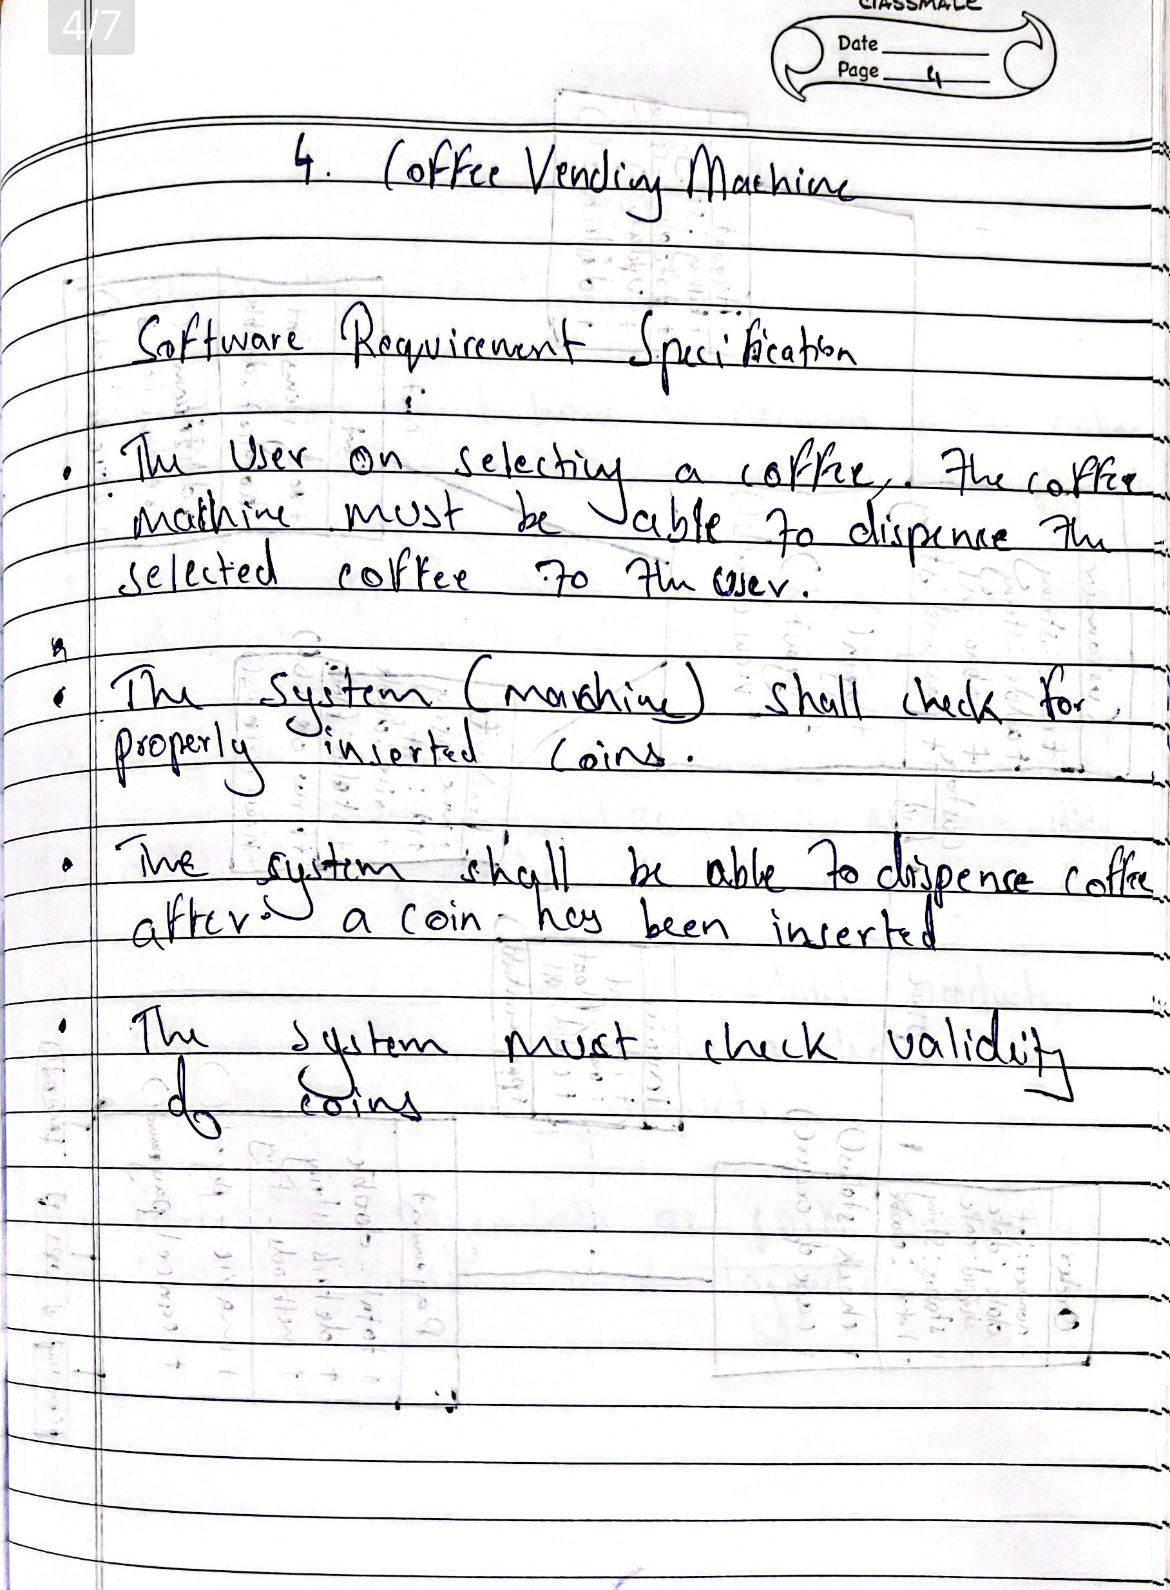 4/7
classmate
Date
Page 4
4. Coffee Vending Machine
Software Requirement Specification
• The User on selecting a coffee, the coffee
machine must be able to dispense the
selected coffee to the user.
• The system (machine) shall check for
properly inserted coins.
• The system shall be able to dispense coffee
after a coin has been inserted
• The system must check validity
of coins